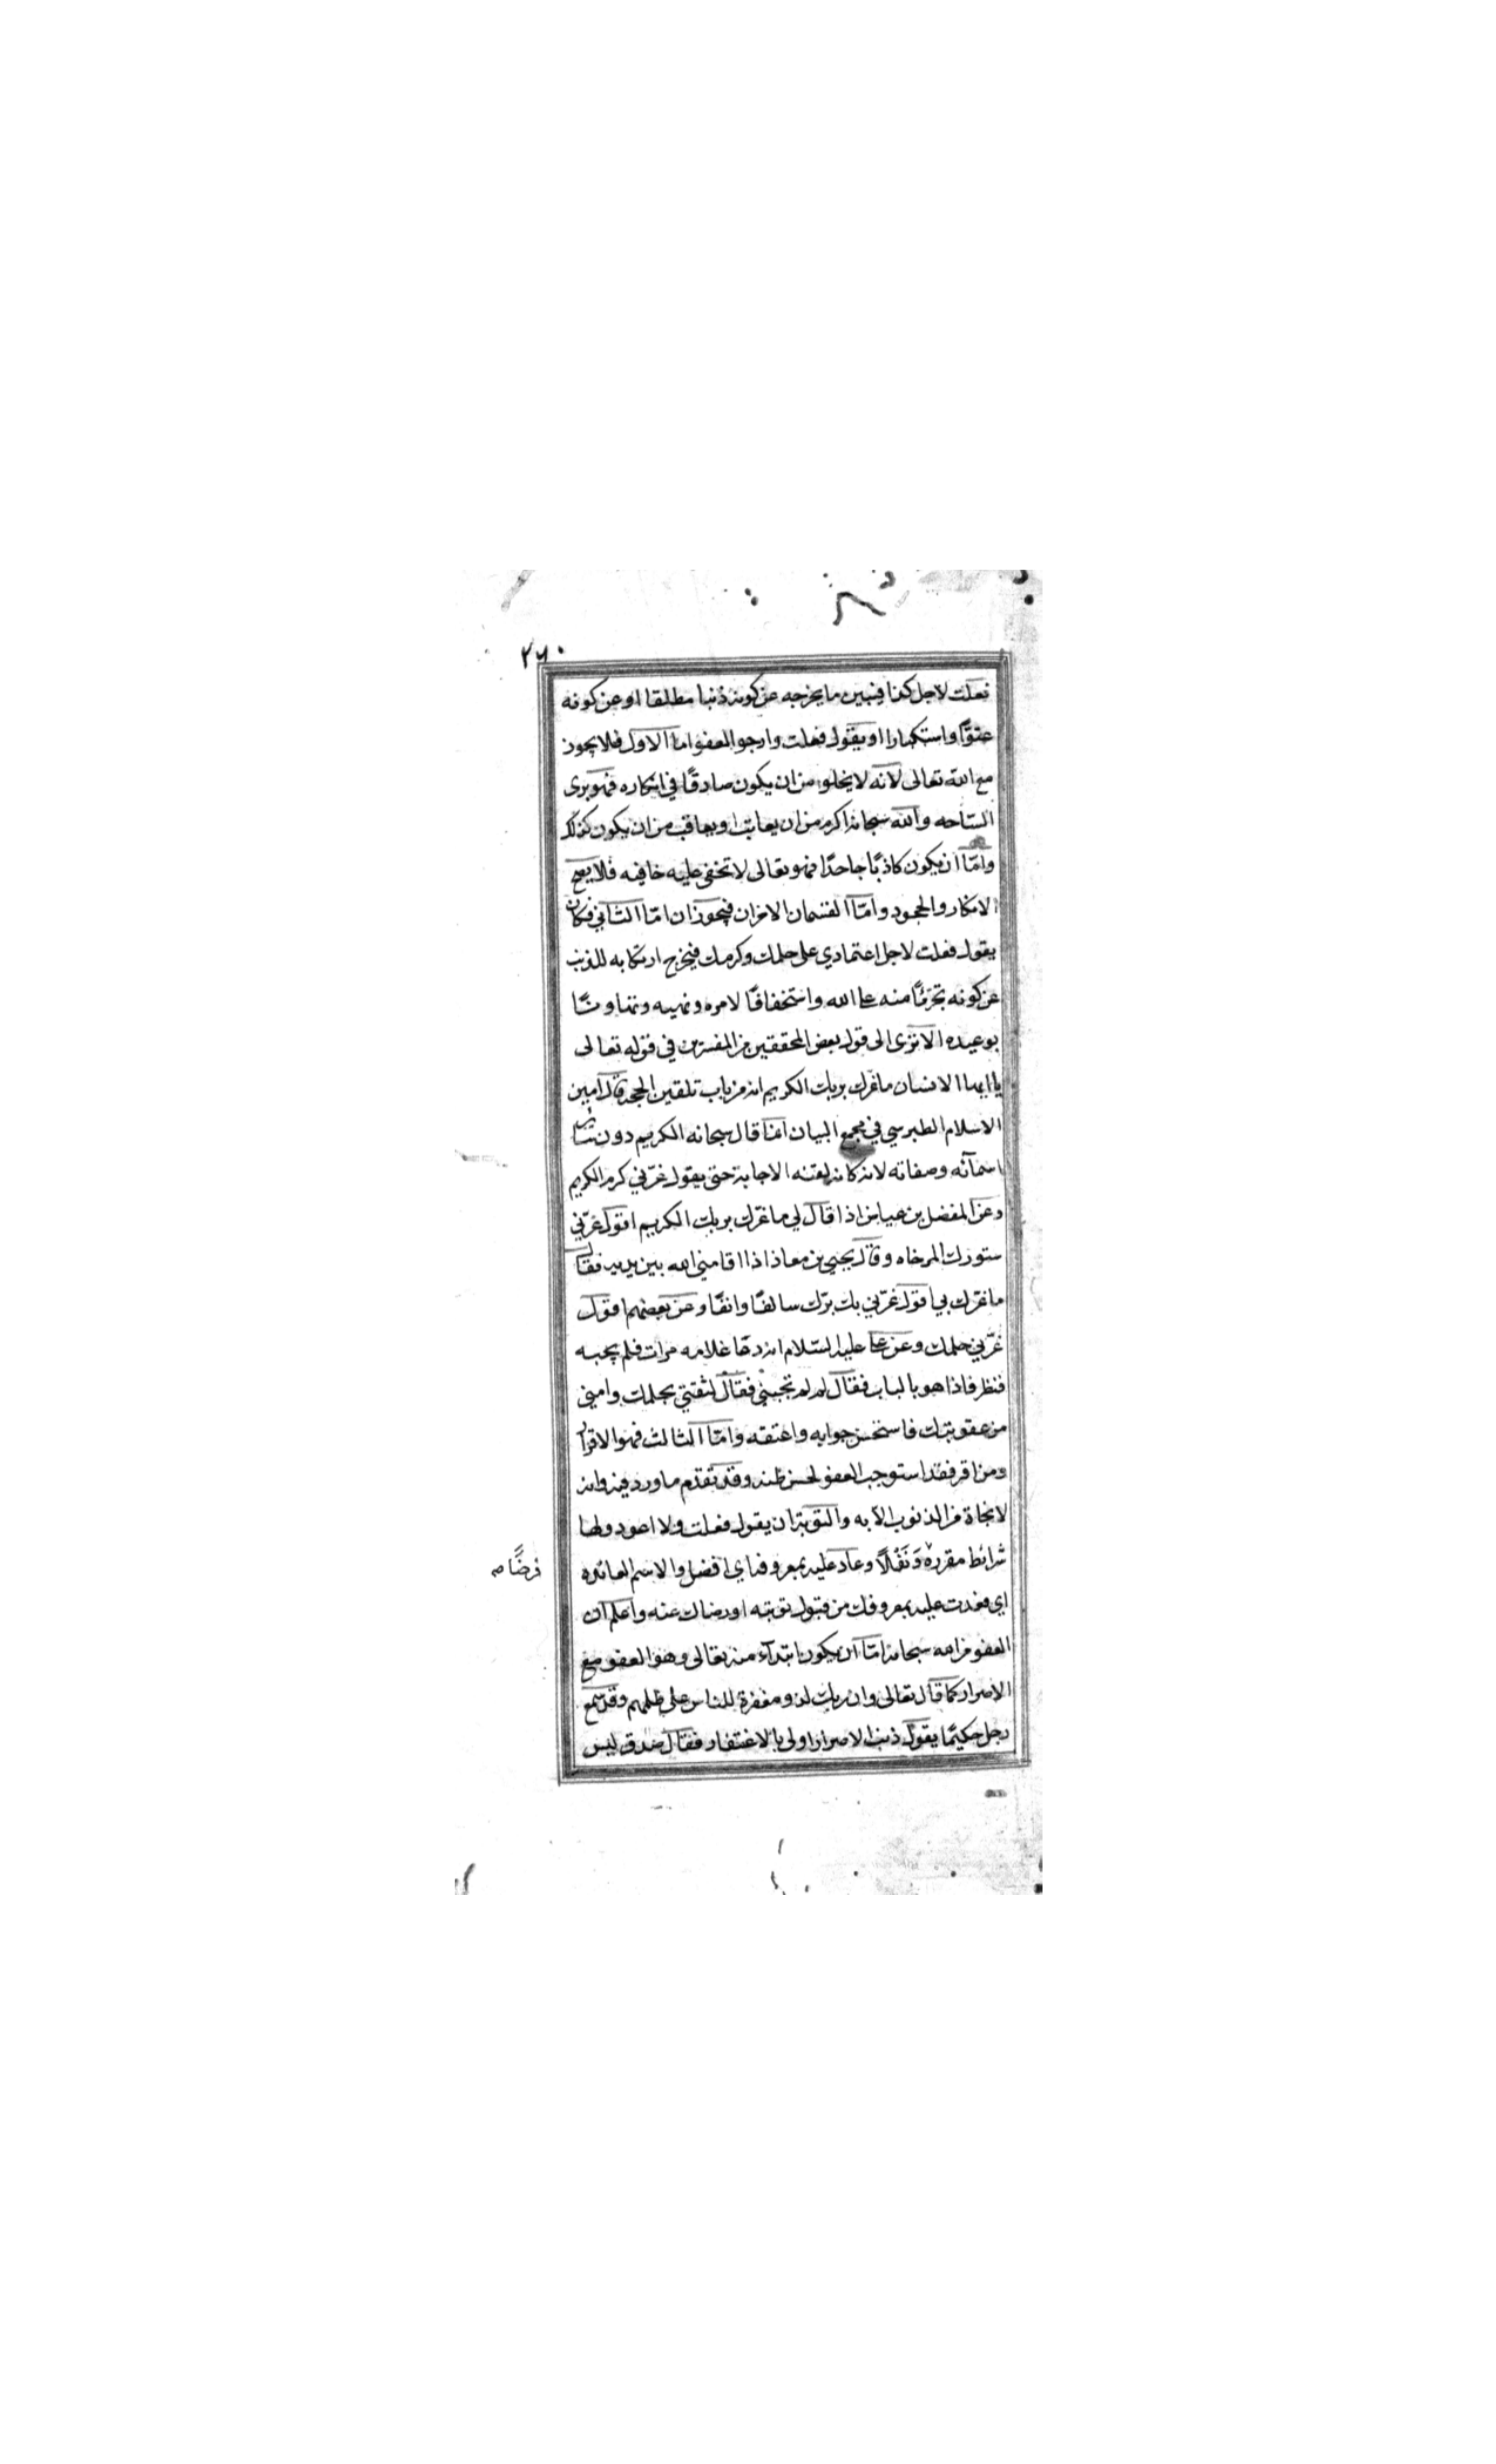 ٢٦٠
فعلت لاجل كذا فيبين ما يخرجه عن كونه ذنبا مطلقا او عن كونه
عتوّا واستكبارا او يقول فعلت وارجو العفو اما الاول فلا يجوز
مع الله تعالى لانه لا يخلو من ان يكون صادقًا في انكاره فهو برى
الساحه والله سبحانه اكرم من ان يعاتب او يعاقب من ان يكون كذلك
وامّا ان يكون كاذبًا جاحدًا فهو تعالى لا تخفى عليه خافيه فلا يصح
الانكار والجحود وامّا القسمان الاخران فيجوزان امّا الثاني فكان
يقول فعلت لاجل اعتمادي على حلمك وكرمك فيخرج ارتكابه للذنب
عن كونه تجرّئًا منه على الله واستخفافًا لامره ونهيه وتهاونًا
بوعيده الا ترى الى قول بعض المحققين من المفسرين في قوله تعالى
يا ايها الانسان ما غرك بربك الكريم انه من باب تلقين الحجة قال امين
الاسلام الطبرسي في مجمع البيان انما قال سبحانه الكريم دون سائر
اسمآئه وصفاته لانه كانه لقنه الاجابة حتى يقول غرّني كرم الكريم
وعن المفضل بن عياض اذا قال لي ما غرّك بربك الكريم اقول غرّني
ستورك المرخاه وقال يحيى بن معاذ اذا اقامني الله بين يديه فقال
ما غرّك بي اقول غرّني بك برّك سالفًا وانفًا وعن بعضهم اقول
غرّني حلمك وعن على عليه السّلام انه دعا غلامه مرات فلم يجبه
فنظر فاذا هو بالباب فقال له لم لم تجبني فقال لثقتي بحلمك وامني
من عقوبتك فاستحسن جوابه واعتقه وامّا الثالث فهو الاقرار
ومن اقر فقد استوجب العفو لحسن ظنه وقد تقدم ما ورد فيه وانه
لا نجاة من الذنوب الا به والتوبة ان يقول فعلت ولا اعود ولها
شرائط مقررة وَنَفْلاً وعاد عليه بمعروف اي افضل والاسم العائده
فرضًا صه
اي فعدت عليه بمعروفك من قبول توبته او رضاك عنه واعلم ان
العفو من الله سبحانه امّا ان يكون ابتدآء منه تعالى وهو العفو مع
الاصرار كما قال تعالى وان ربك لذو مغفرة للناس على ظلمهم وقد سمع
رجل حكيمًا يقول ذنب الاصرار اولى بالاغتفار فقال صدق ليس